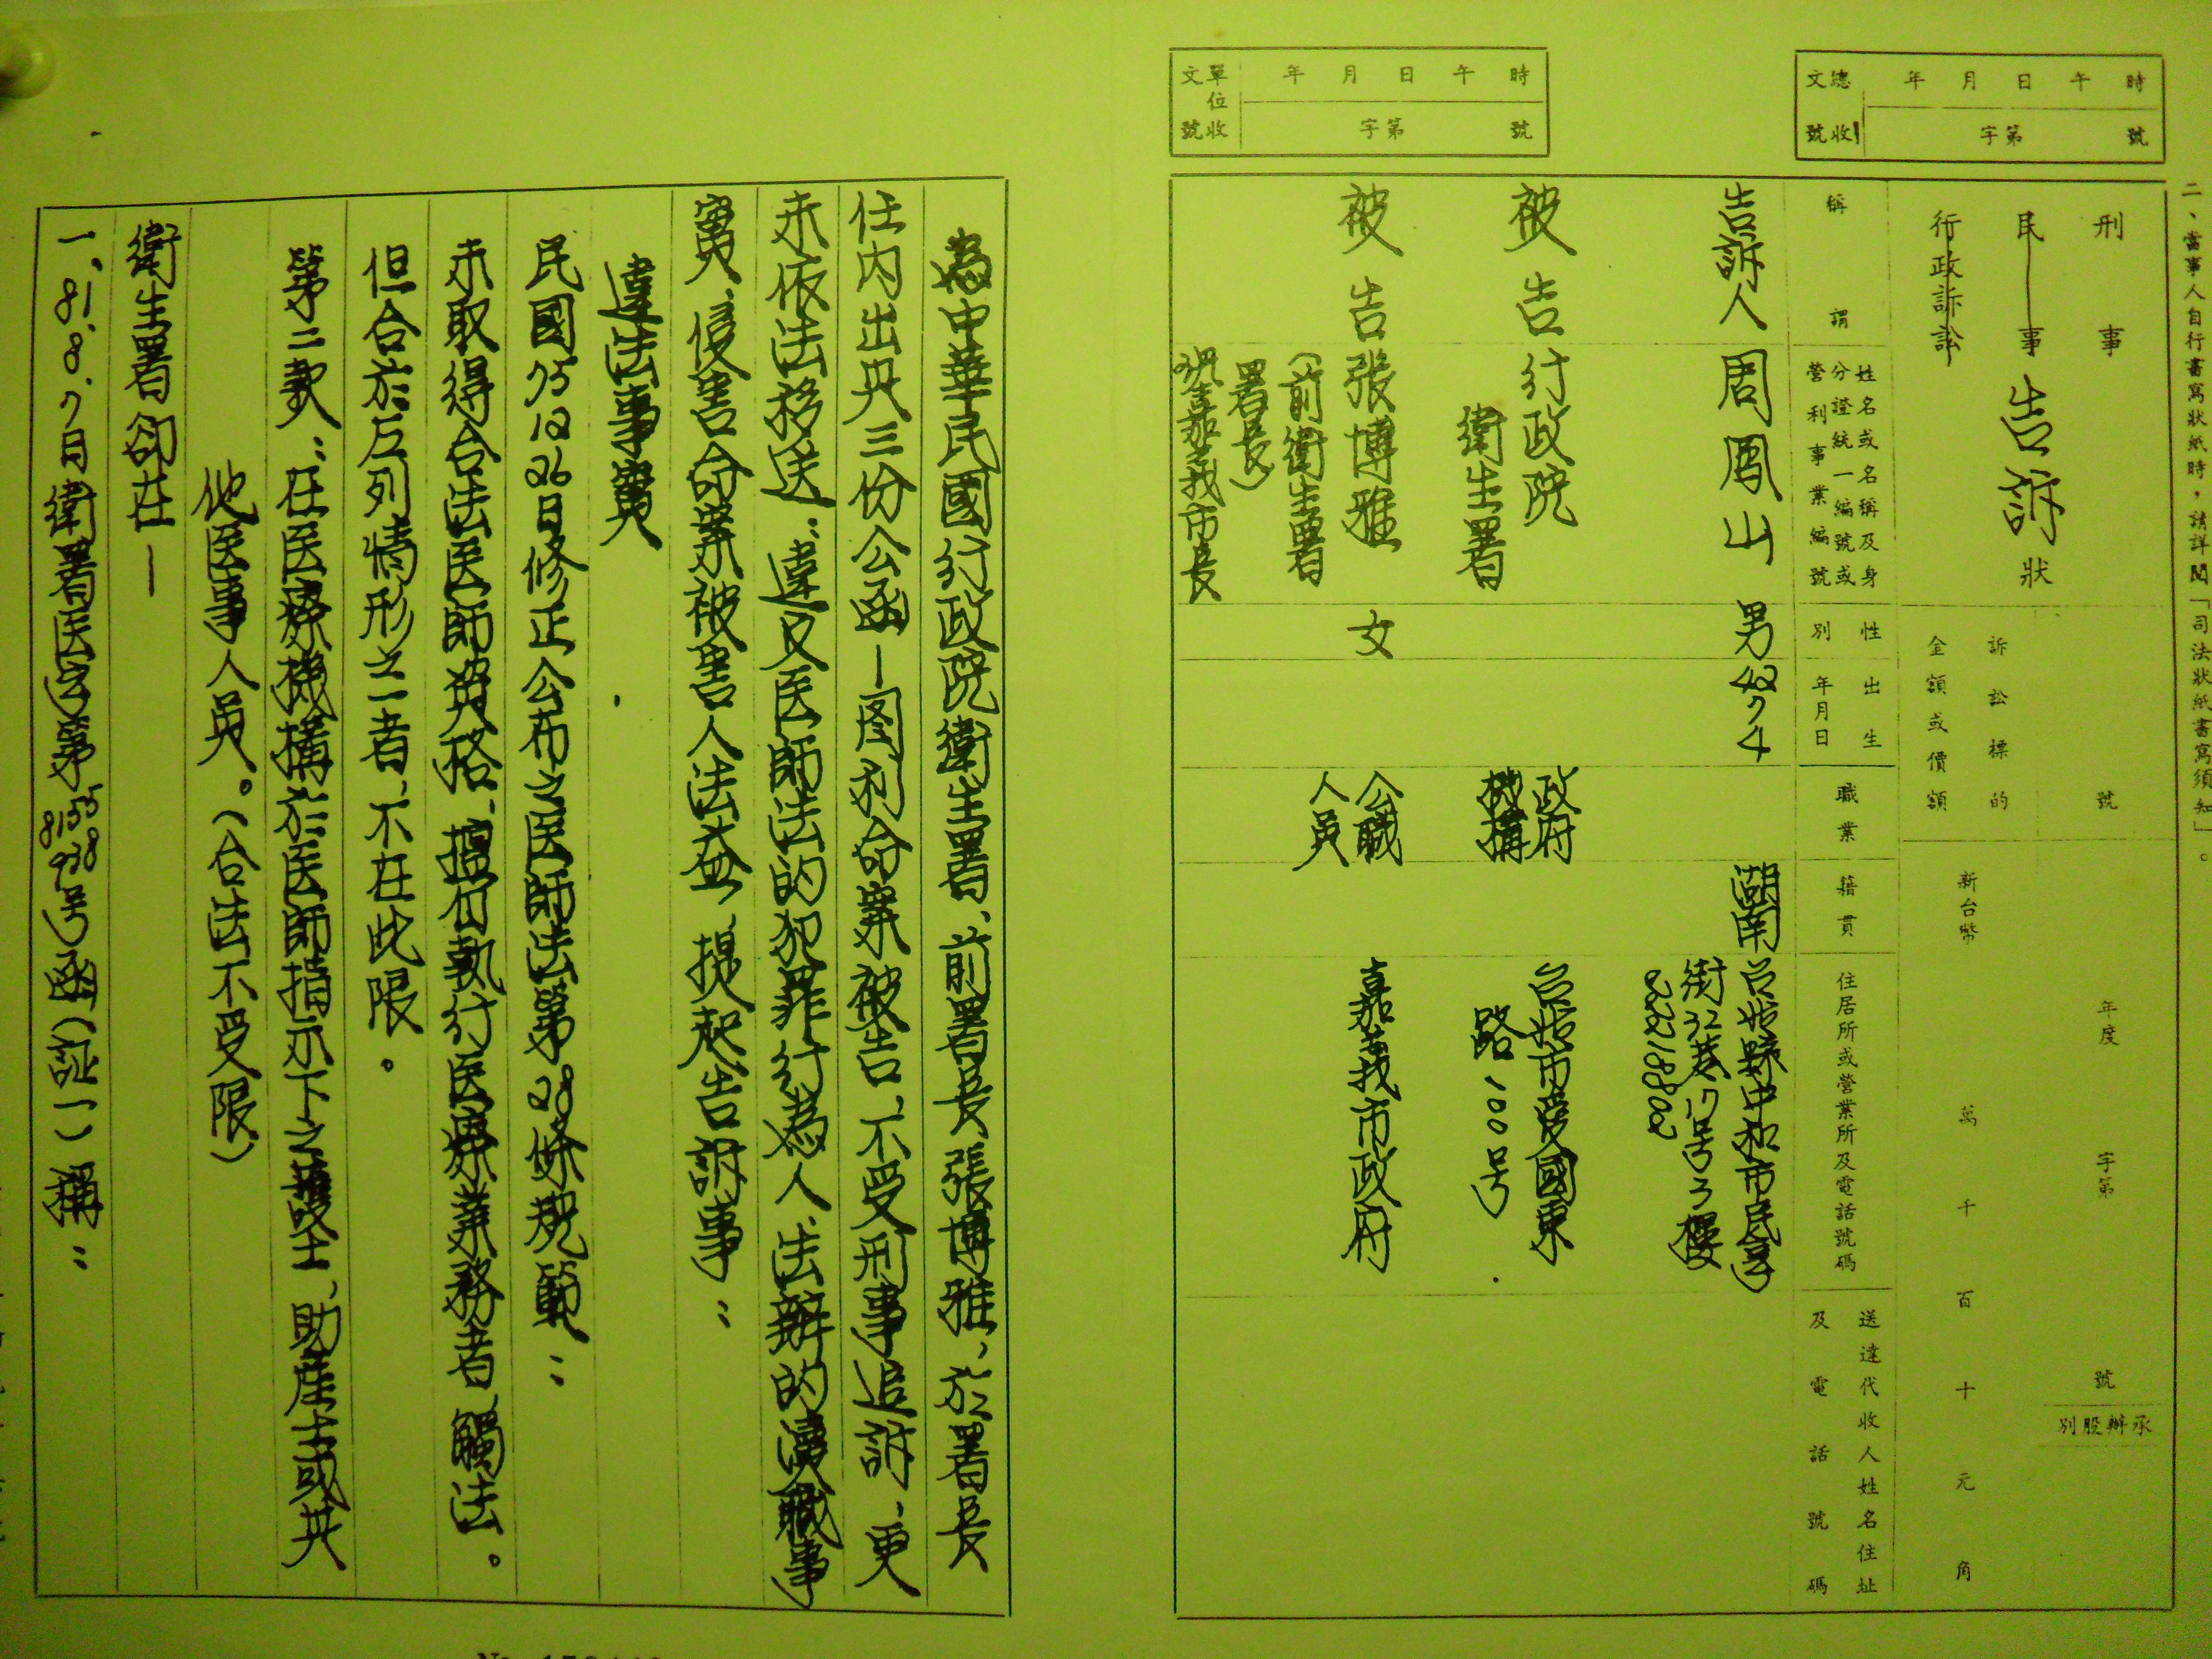 二、當事人自行書寫狀紙時，請詳閱「司法狀紙書寫須知」。
總收文號
年 月 日 午 時
字第 號
單位收文號
年 月 日 午 時
字第 號
刑事
民事
行政訴訟
告訴狀
號 年度 字第 號
承辦股別
訴訟標的
金額或價額
新台幣 萬 千 百 十 元 角
稱謂
姓名或名稱及身
分證統一編號或
營利事業編號
性別
出生
年月日
職業
籍貫
住居所或營業所及電話號碼
送達代收人姓名住址
及電話號碼
告訴人 周鳳山 男 42 7 4 湖南 台北縣中和市民享
街32巷17号3樓
被告 行政院
衛生署
政府
機構
台北市愛國東
路一00号
被告 張博雅 女
(前衛生署
署長)
現嘉義市長
公職
人員
嘉義市政府
為中華民國行政院衛生署、前署長張博雅，於署長
任内出具三份公函—图利命案被告、不受刑事追訴、更
未依法移送：違反医師法的犯罪行為人、法辦的瀆職事
實、侵害命案被害人法益、提起告訴事：
違法事實
民國75 12 26日修正公布之医師法第28條規範：
未取得合法医師資格、擅自執行医療業務者、觸法。
但合於左列情形之一者、不在此限。
第二款：在医療機構於医師指示下之護士、助產士或其
他医事人員。(合法不受限)
衛生署卻在—
一、81.8.7日衛署医字第8155938号函(証一)稱：